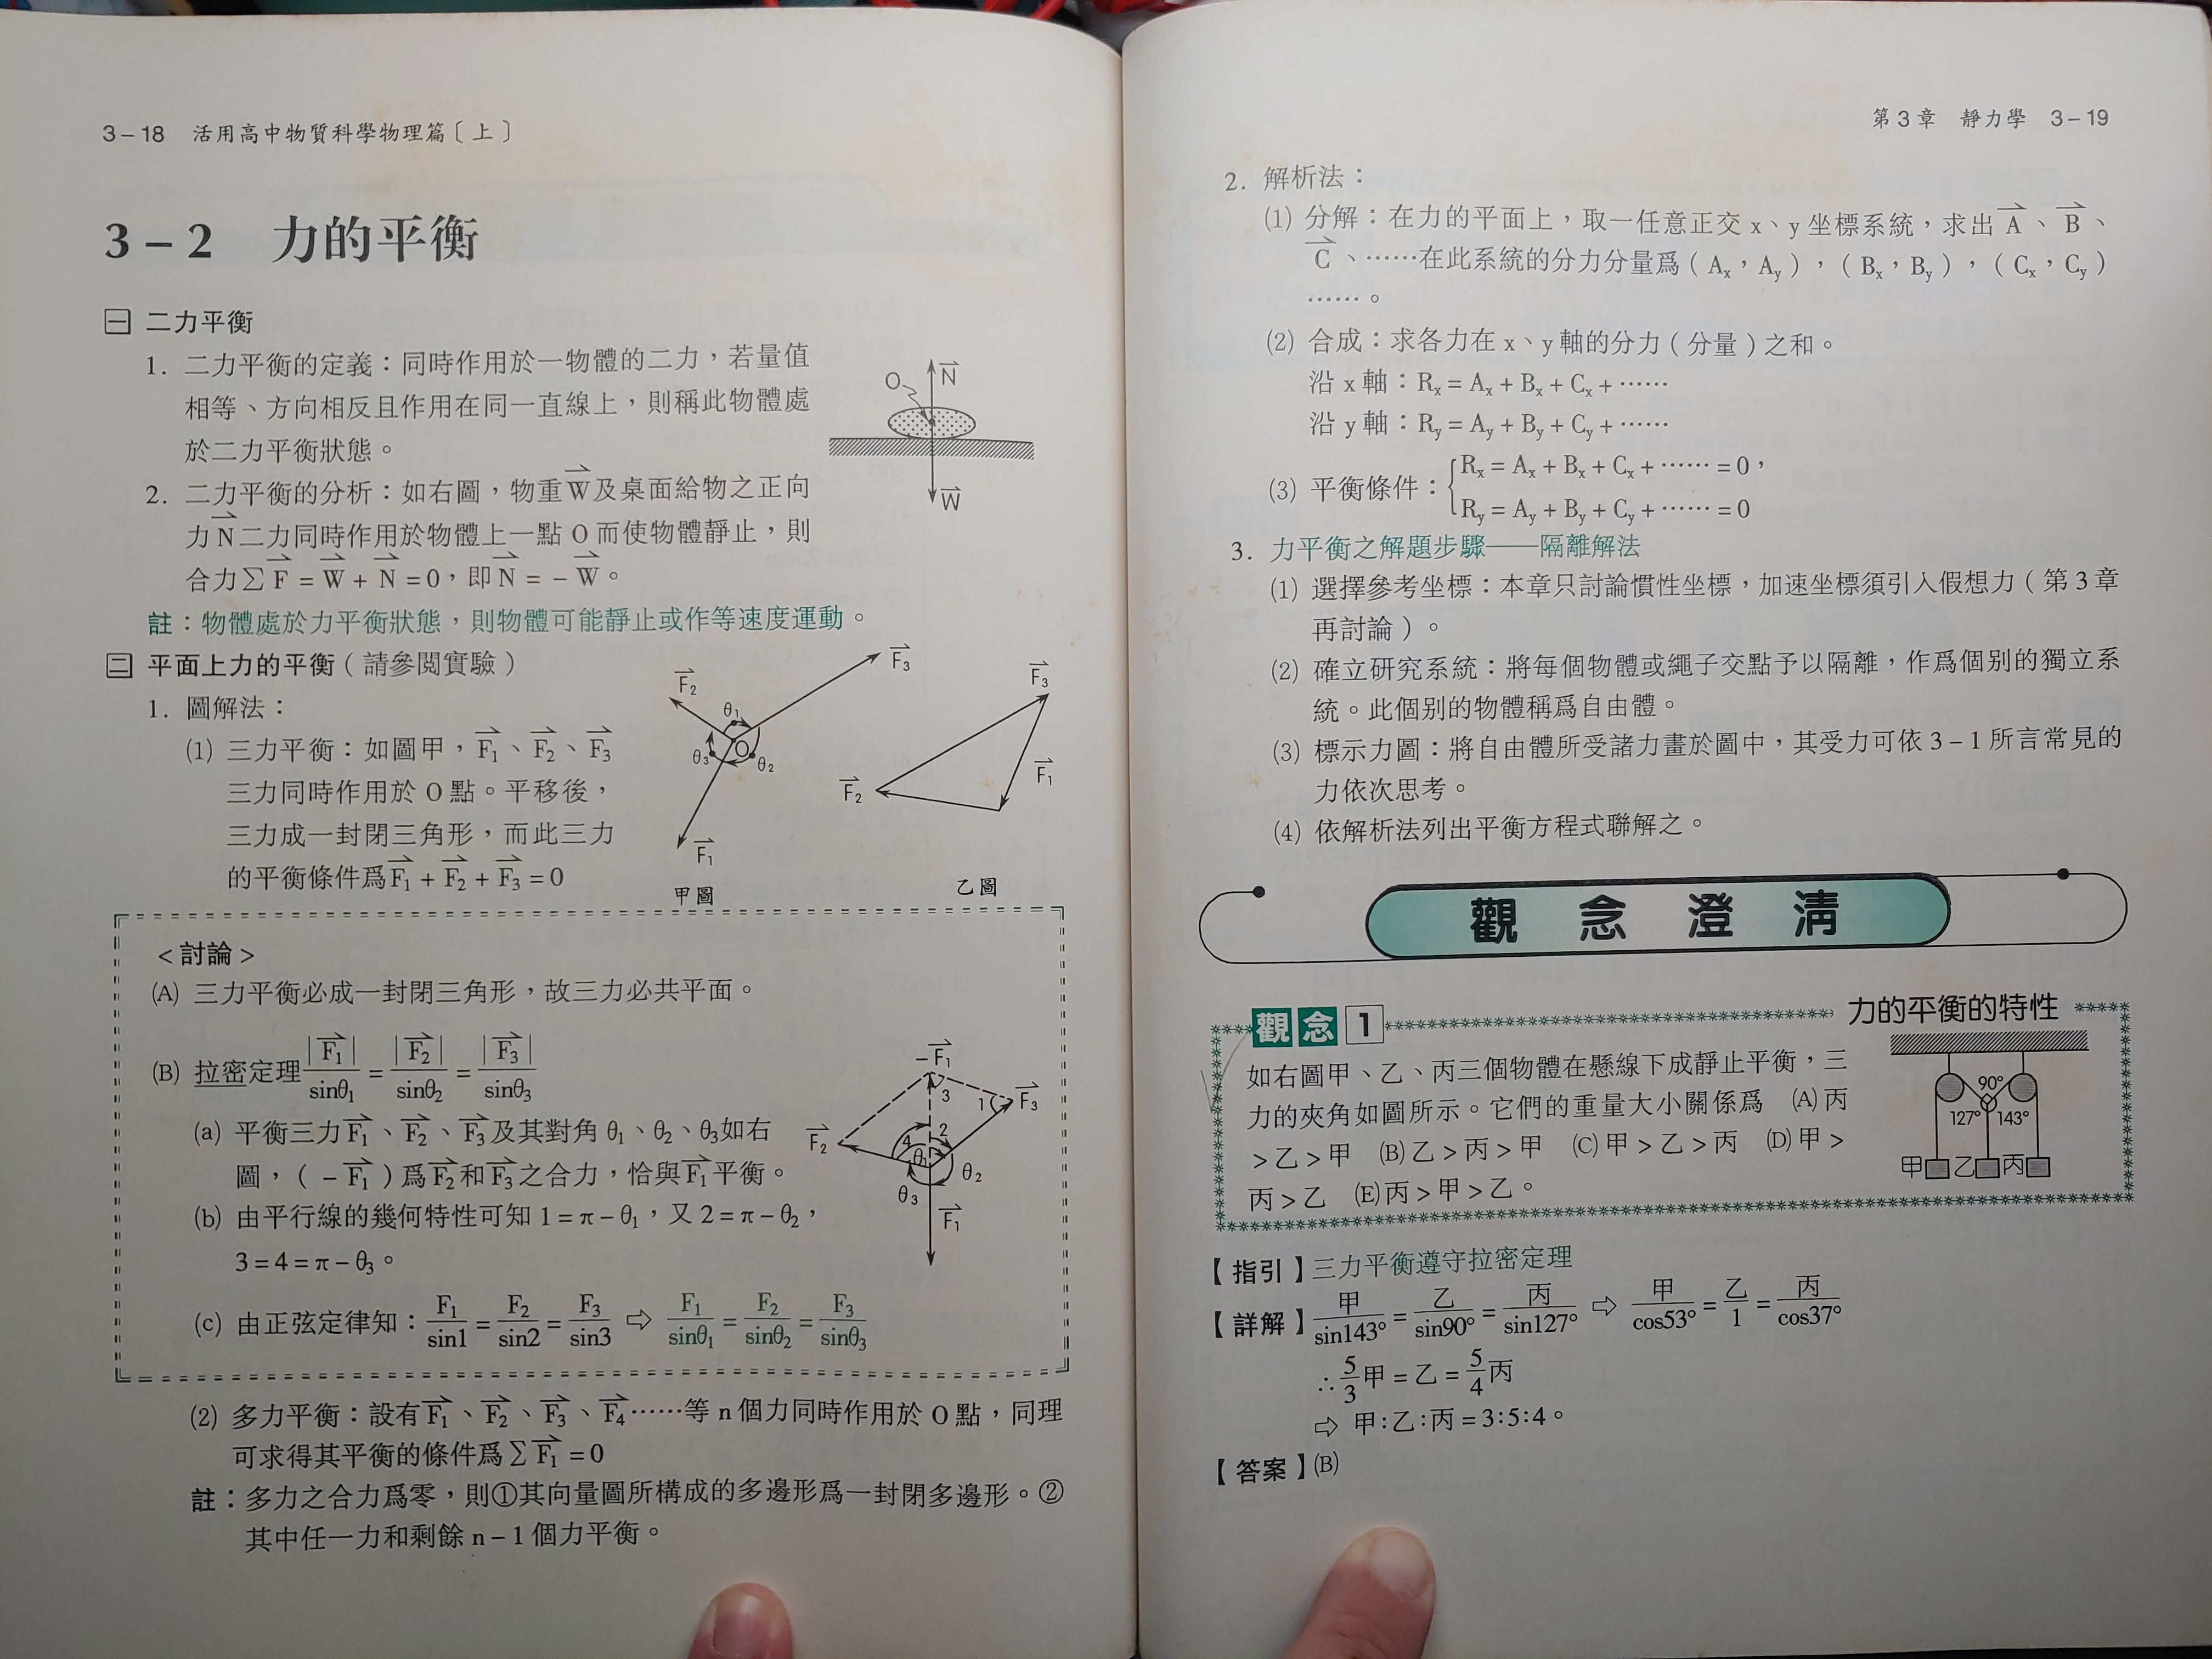 3－18 活用高中物質科學物理篇〔上〕
3－2 力的平衡
㊀ 二力平衡
1. 二力平衡的定義：同時作用於一物體的二力，若量值
相等、方向相反且作用在同一直線上，則稱此物體處
於二力平衡狀態。
2. 二力平衡的分析：如右圖，物重W⃗及桌面給物之正向
力N⃗二力同時作用於物體上一點 O 而使物體靜止，則
合力∑F⃗ = W⃗ + N⃗ = 0，即N⃗ = － W⃗。
O
N⃗
W⃗
註：物體處於力平衡狀態，則物體可能靜止或作等速度運動。
㊁ 平面上力的平衡（請參閱實驗）
1. 圖解法：
(1) 三力平衡：如圖甲，F⃗₁、F⃗₂、F⃗₃
三力同時作用於 O 點。平移後，
三力成一封閉三角形，而此三力
的平衡條件爲F⃗₁ + F⃗₂ + F⃗₃ = 0
F⃗₂
F⃗₃
θ₁
O
θ₃
θ₂
F⃗₁
甲圖
F⃗₃
F⃗₂
F⃗₁
乙圖
<討論>
(A) 三力平衡必成一封閉三角形，故三力必共平面。
(B) 拉密定理|F⃗₁|/sinθ₁ = |F⃗₂|/sinθ₂ = |F⃗₃|/sinθ₃
(a) 平衡三力F⃗₁、F⃗₂、F⃗₃及其對角 θ₁、θ₂、θ₃如右
圖，(－F⃗₁)爲F⃗₂和F⃗₃之合力，恰與F⃗₁平衡。
(b) 由平行線的幾何特性可知 1 = π－θ₁，又 2 = π－θ₂，
3 = 4 = π－θ₃。
(c) 由正弦定律知：F₁/sin1 = F₂/sin2 = F₃/sin3 ⇨ F₁/sinθ₁ = F₂/sinθ₂ = F₃/sinθ₃
－F⃗₁
3
1
F⃗₃
F⃗₂
4
2
θ₁
θ₂
θ₃
F⃗₁
(2) 多力平衡：設有F⃗₁、F⃗₂、F⃗₃、F⃗₄……等 n 個力同時作用於 O 點，同理
可求得其平衡的條件爲∑F⃗₁ = 0
註：多力之合力爲零，則①其向量圖所構成的多邊形爲一封閉多邊形。②
其中任一力和剩餘 n－1 個力平衡。
第 3 章 靜力學 3－19
2. 解析法：
(1) 分解：在力的平面上，取一任意正交 x、y 坐標系統，求出 A⃗、B⃗、
C⃗、……在此系統的分力分量爲（Aₓ，A_y），（Bₓ，B_y），（Cₓ，C_y）
……。
(2) 合成：求各力在 x、y 軸的分力（分量）之和。
沿 x 軸：Rₓ = Aₓ + Bₓ + Cₓ + ……
沿 y 軸：R_y = A_y + B_y + C_y + ……
(3) 平衡條件：{Rₓ = Aₓ + Bₓ + Cₓ + …… = 0，
R_y = A_y + B_y + C_y + …… = 0
3. 力平衡之解題步驟——隔離解法
(1) 選擇參考坐標：本章只討論慣性坐標，加速坐標須引入假想力（第 3 章
再討論）。
(2) 確立研究系統：將每個物體或繩子交點予以隔離，作爲個別的獨立系
統。此個別的物體稱爲自由體。
(3) 標示力圖：將自由體所受諸力畫於圖中，其受力可依 3－1 所言常見的
力依次思考。
(4) 依解析法列出平衡方程式聯解之。
觀念澄清
觀念 1 力的平衡的特性
如右圖甲、乙、丙三個物體在懸線下成靜止平衡，三
力的夾角如圖所示。它們的重量大小關係爲 (A)丙
>乙>甲 (B)乙>丙>甲 (C)甲>乙>丙 (D)甲>
丙>乙 (E)丙>甲>乙。
90°
127° 143°
甲 乙 丙
【指引】三力平衡遵守拉密定理
【詳解】甲/sin143° = 乙/sin90° = 丙/sin127° ⇨ 甲/cos53° = 乙/1 = 丙/cos37°
∴ 5/3 甲 = 乙 = 5/4 丙
⇨ 甲:乙:丙 = 3:5:4。
【答案】(B)